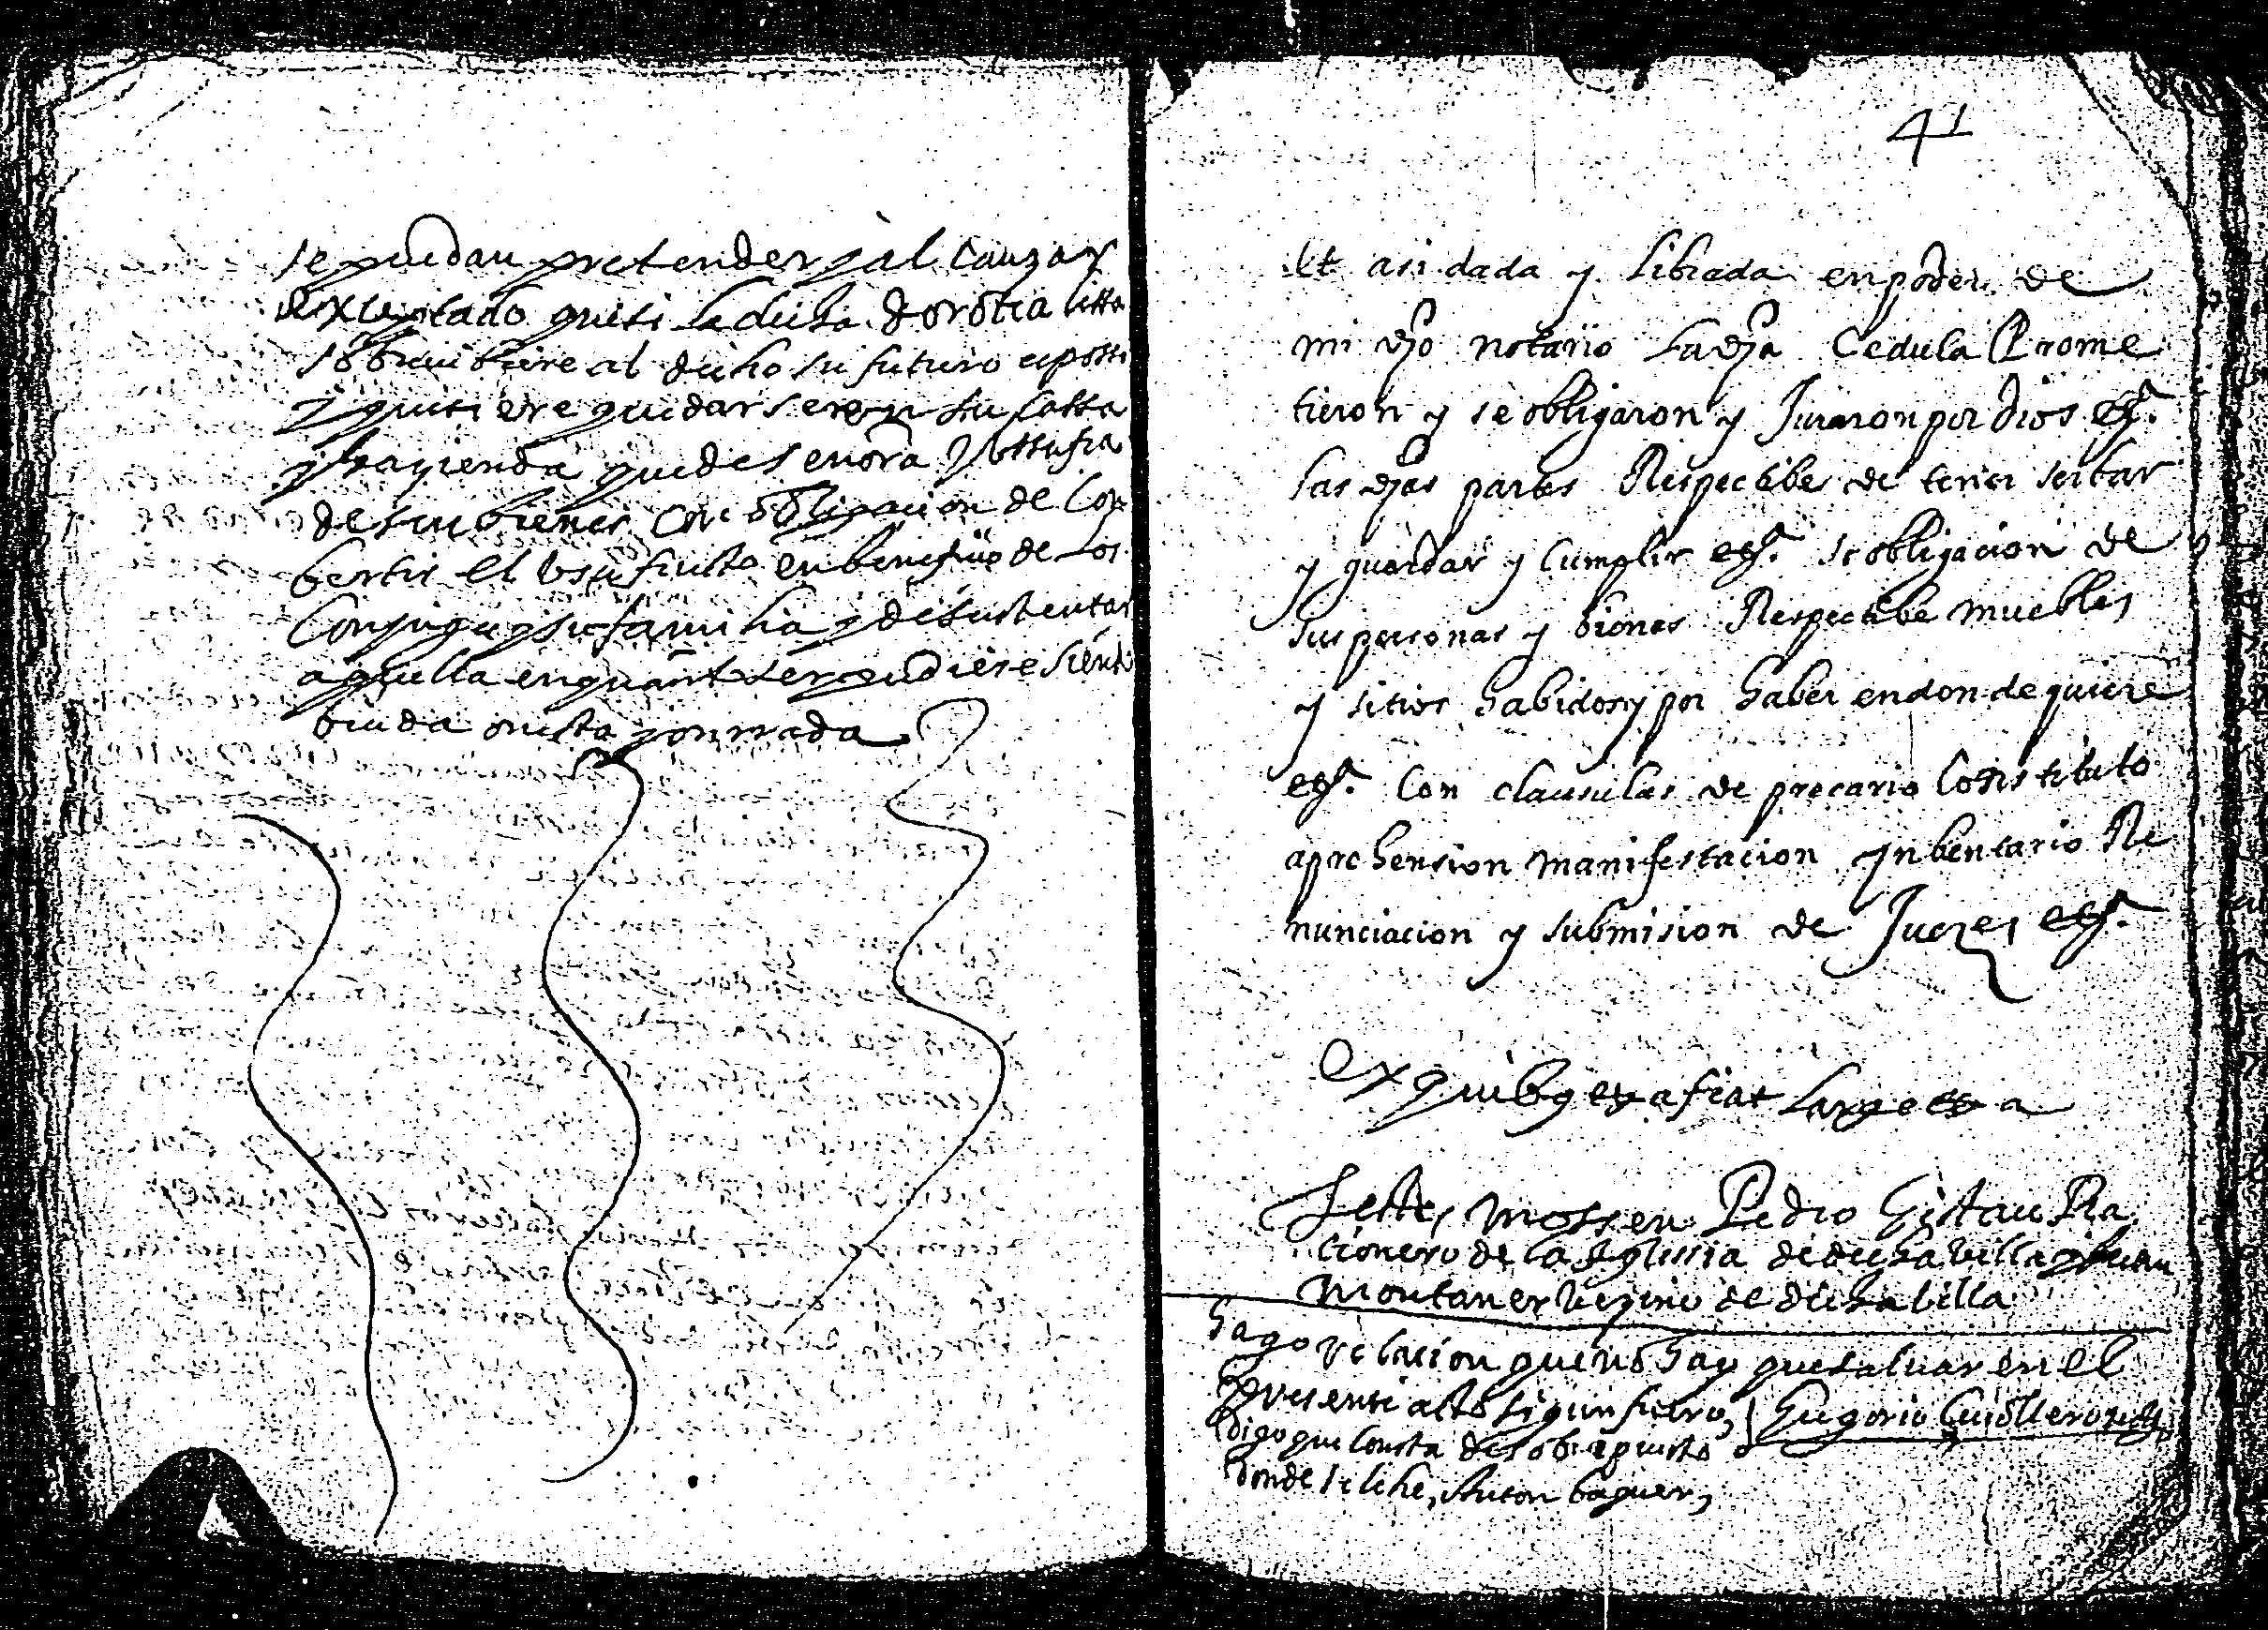 se puedan pretender y alcanzar
exceptado que si la dicha Dorotia Litta
sobreuibiere al dicho su futuro esposso
y quisiere quedarse en su cassa
y hazienda quede senora y ussufra
de sus bienes con obligacion de con
bertir el usufructo en beneficio de los
conjuges y su familia y de sustentar
aquella en quanto ser pudiere siendo
biuda onesta y onrrada
41
Et asi dada y librada en poder de
mi dho notario la dha Cedula Prome
tieron y se obligaron y Juraron por Dios etz.ª
las dhas partes Respectibe de tener serbar
y guardar y cumplir etz.ª so obligacion de
sus personas y bienes Respectibe muebles
y sitios habidos y por haber en donde quiere
etz.ª con clausulas de precario Constituto
aprehension manifestacion ynbentario Re
nunciacion y submision de Juezes etz.ª
Ex quibus etza fiat large etza
Testes Mossen Pedro Gistau Ra
cionero de la Iglessia de dicha villa y Juan
Montaner vezino de dicha billa
hago relacion que no hay que saluar en el
presente acto sigun fuero, Gregorio Guillero not.
digo que consta de sobrepuesto
donde se lehe, Anton baguer,